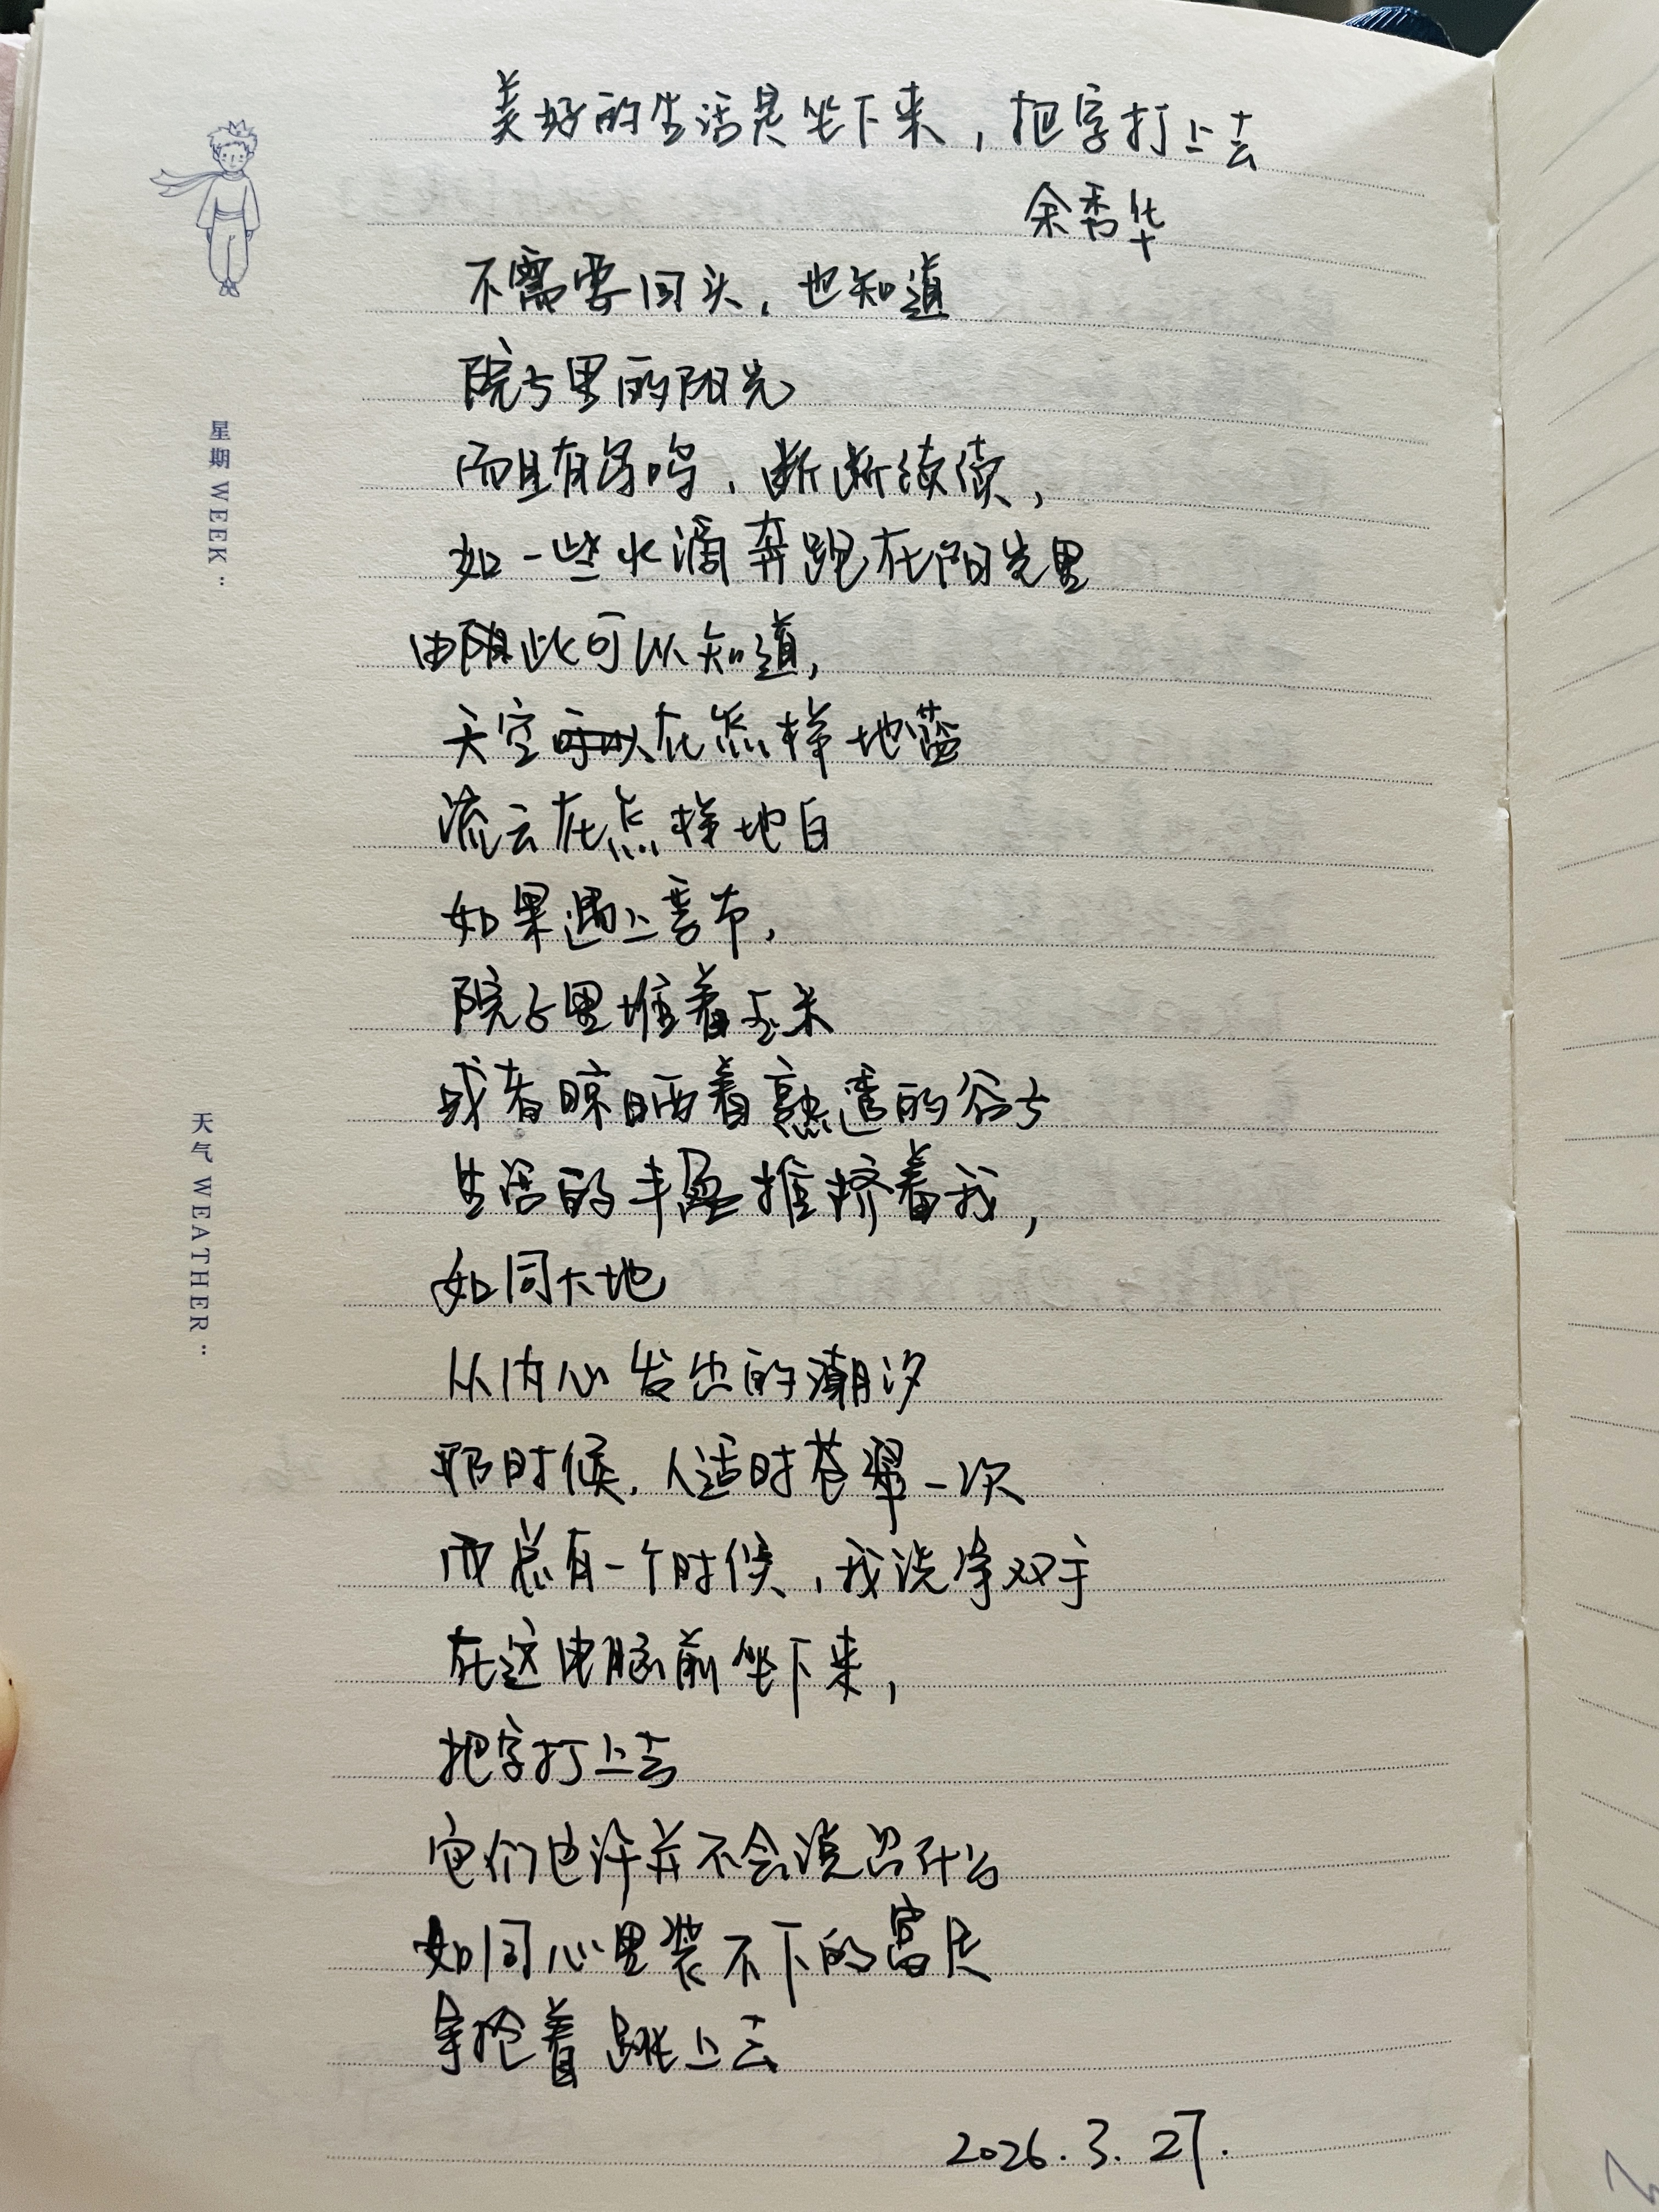 美好的生活是坐下来，把字打上去
余秀华
不需要回头，也知道
院子里的阳光
而且有鸟鸣，断断续续，
如一些水滴奔跑在阳光里
由此可以知道，
天空在怎样地蓝
流云在怎样地白
如果遇上喜市，
院子里堆着玉米
或者晾晒着熟透的谷子
生活的丰盈推挤着我，
如同大地
从内心发出的潮汐
那时候，人适时苍翠一次
而总有一个时候，我洗净双手
在这电脑前坐下来，
把字打上去
它们也许并不会说出什么
如同心里装不下的富足
争抢着跳上去
2026.3.27.
星期 WEEK:
天气 WEATHER: